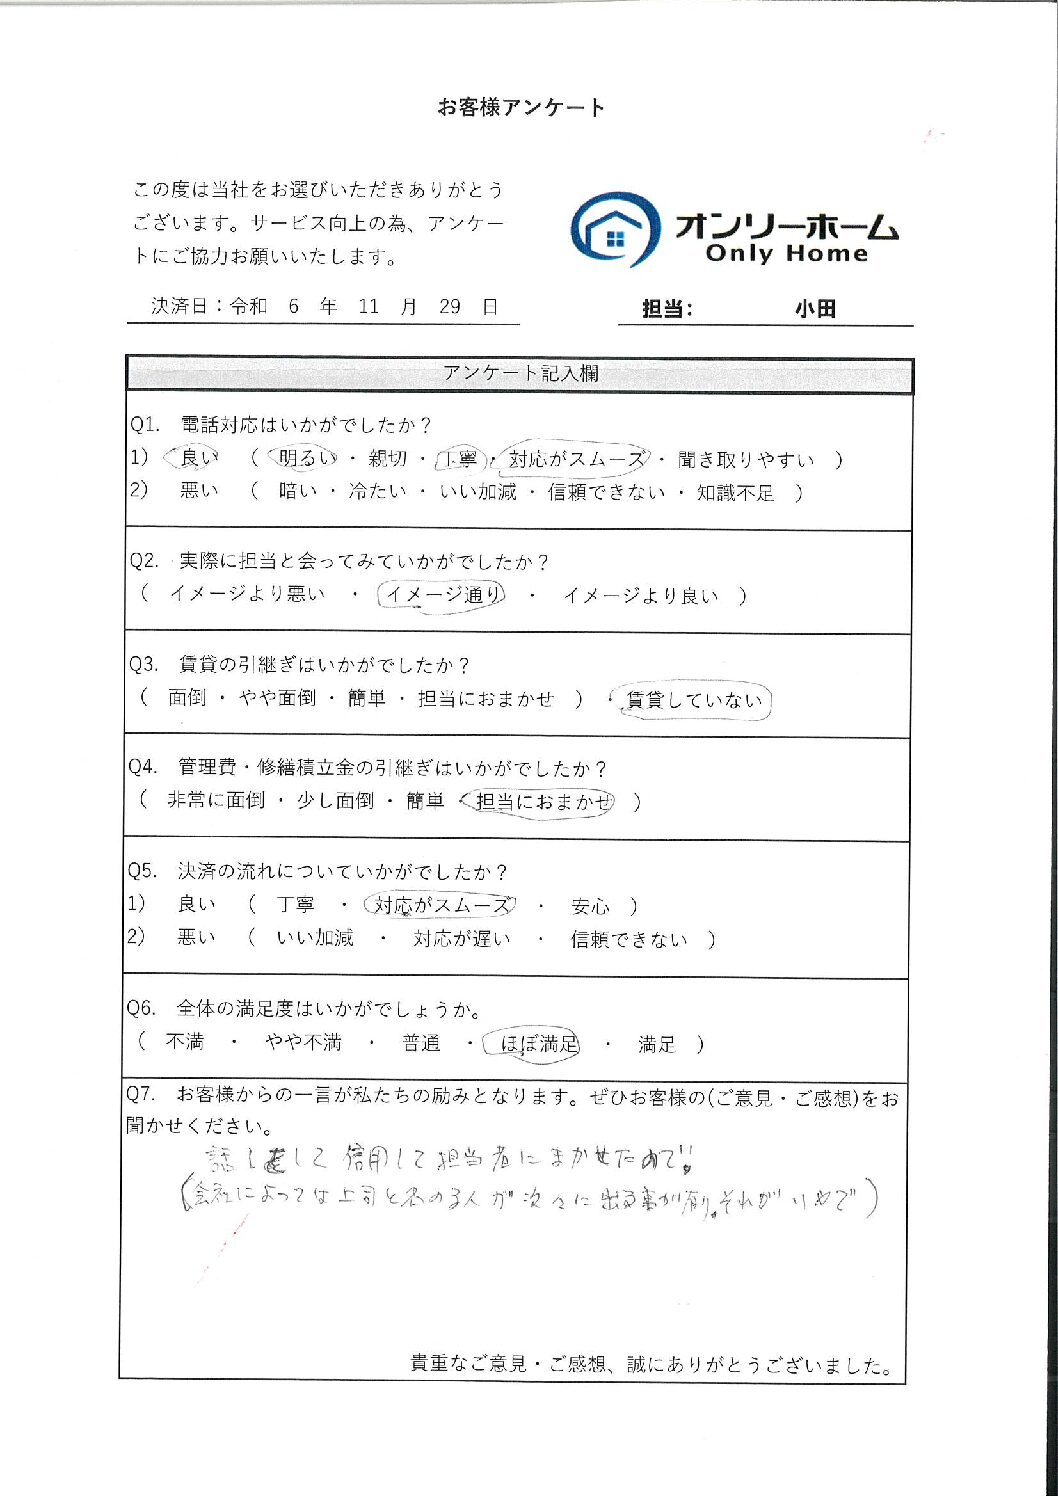 お客様アンケート
この度は当社をお選びいただきありがとう
ございます。サービス向上の為、アンケー
トにご協力お願いいたします。
オンリーホーム
Only Home
決済日：令和 6 年 11 月 29 日
担当： 小田
アンケート記入欄
Q1. 電話対応はいかがでしたか？
1) 良い （ 明るい ・ 親切 ・ 丁寧 ・ 対応がスムーズ ・ 聞き取りやすい ）
2) 悪い （ 暗い ・ 冷たい ・ いい加減 ・ 信頼できない ・ 知識不足 ）
Q2. 実際に担当と会ってみていかがでしたか？
（ イメージより悪い ・ イメージ通り ・ イメージより良い ）
Q3. 賃貸の引継ぎはいかがでしたか？
（ 面倒 ・ やや面倒 ・ 簡単 ・ 担当におまかせ ） ・ 賃貸していない
Q4. 管理費・修繕積立金の引継ぎはいかがでしたか？
（ 非常に面倒 ・ 少し面倒 ・ 簡単 ・ 担当におまかせ ）
Q5. 決済の流れについていかがでしたか？
1) 良い （ 丁寧 ・ 対応がスムーズ ・ 安心 ）
2) 悪い （ いい加減 ・ 対応が遅い ・ 信頼できない ）
Q6. 全体の満足度はいかがでしょうか。
（ 不満 ・ やや不満 ・ 普通 ・ ほぼ満足 ・ 満足 ）
Q7. お客様からの一言が私たちの励みとなります。ぜひお客様の(ご意見・ご感想)をお
聞かせください。
話し して信用して担当者にまかせたので!!
(会社によっては上司と名のる人が次々に出る事が有り。それがいやで)
貴重なご意見・ご感想、誠にありがとうございました。